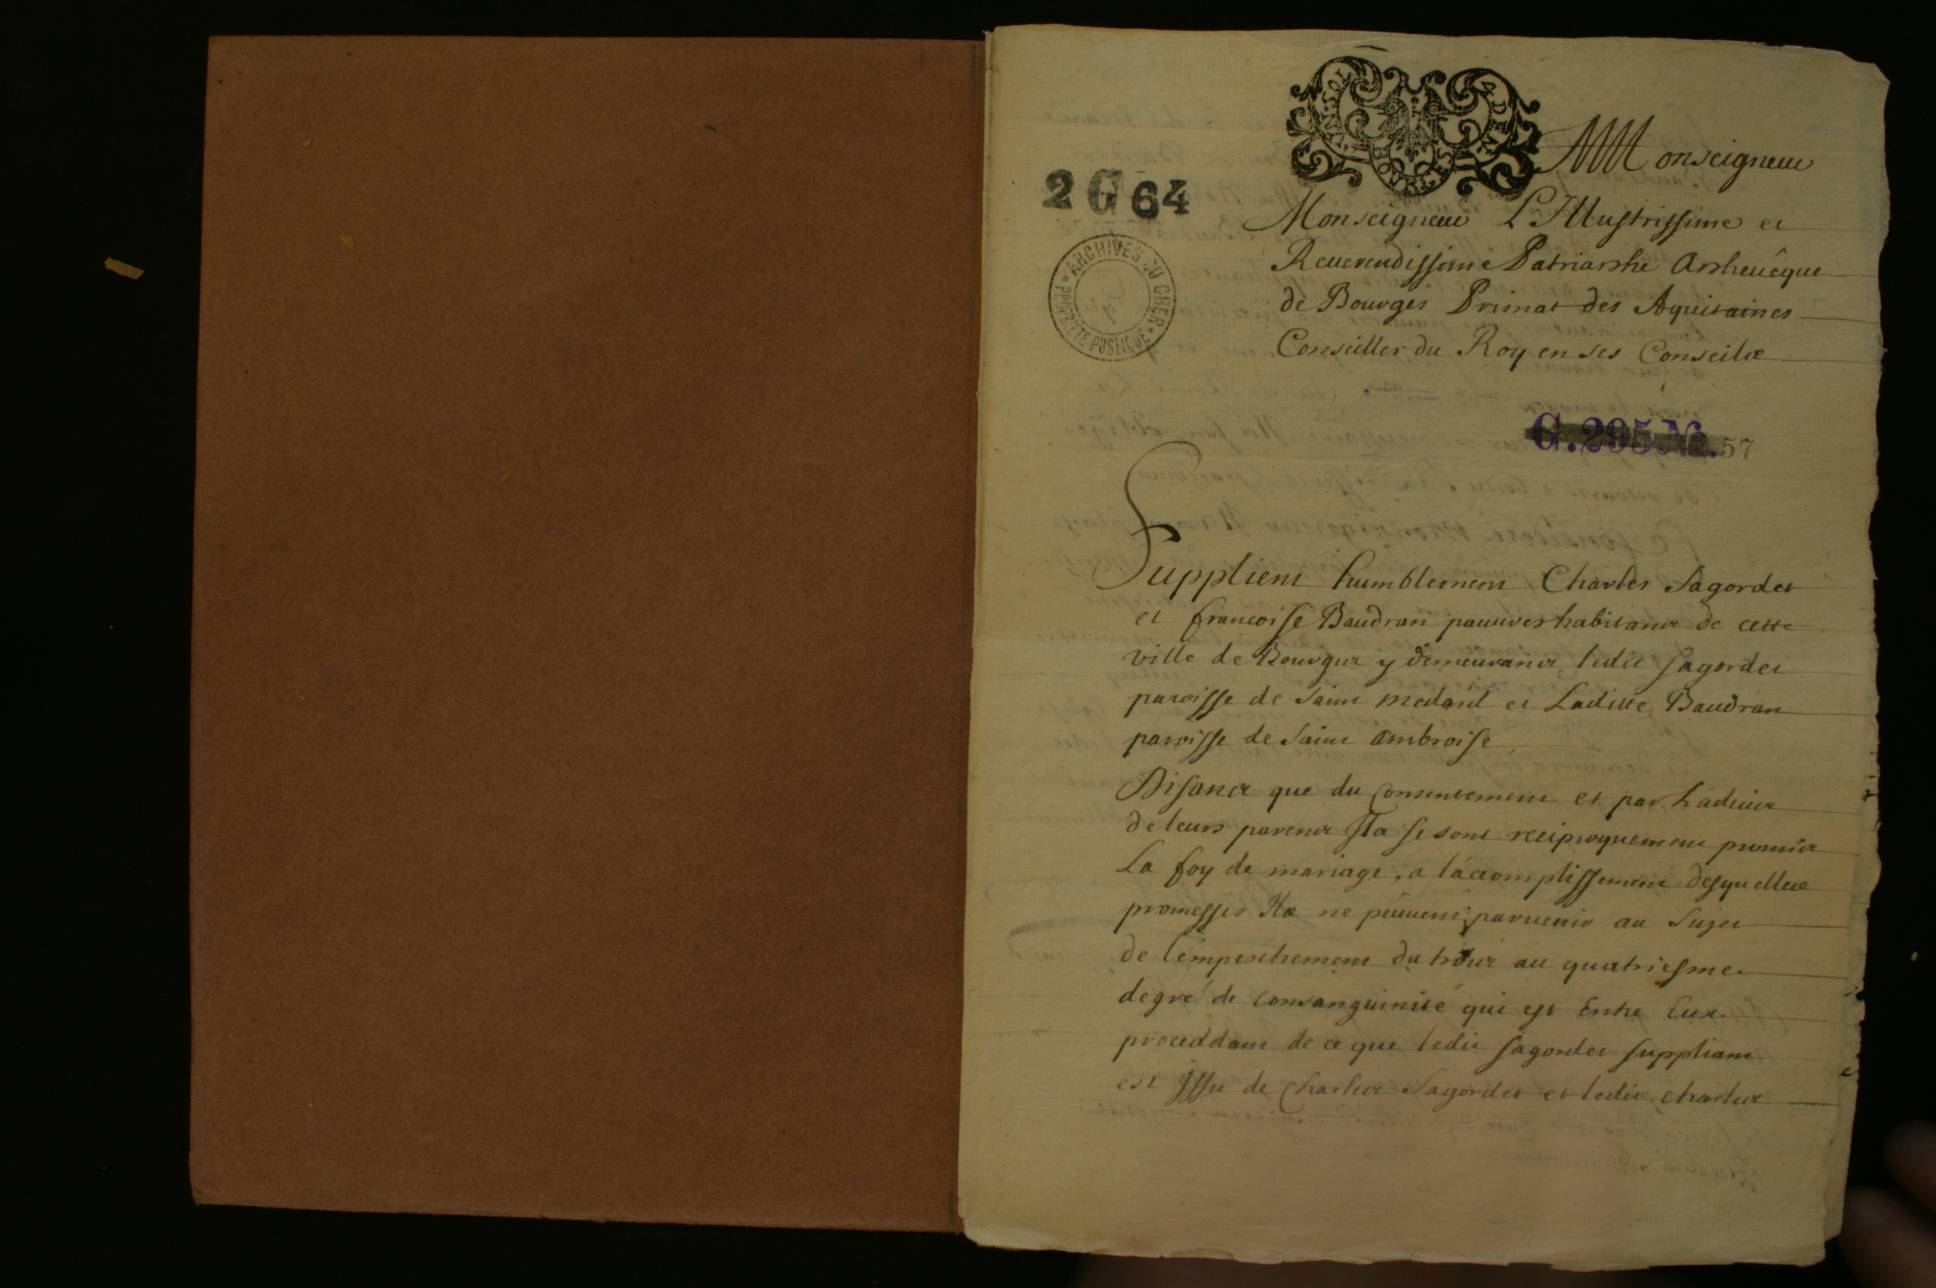 Monseigneur
2 G 64
Monseigneur L'Illustrissime et
Reuerendissime Patriarche Archeuêque
de Bourges Primat des Aquitaines
Conseiller du Roy en ses Conseils
ARCHIVES DU CHER
PROPRIÉTÉ PUBLIQUE
G. 295 No. 57
Supplient humblement Charles Sagordet
et francoise Baudran pauures habitans de cette
ville de Bourges y demeurans ledit Sagordet
paroisse de Saint Medard et Laditte Baudran
paroisse de Saint Ambroise
Disans que du Consentement et par Laduis
de leurs parens Ils se sont reciproquement promis
La foy de mariage, a l'acomplissement desquelles
promesses Ils ne peuuent paruenir au Sujet
de l'empeschement du trois au quatriesme
degré de consanguinité qui est Entre Eux
proceddant de ce que ledit Sagordet suppliant
est Issu de Charles Sagordet et ledit Charles